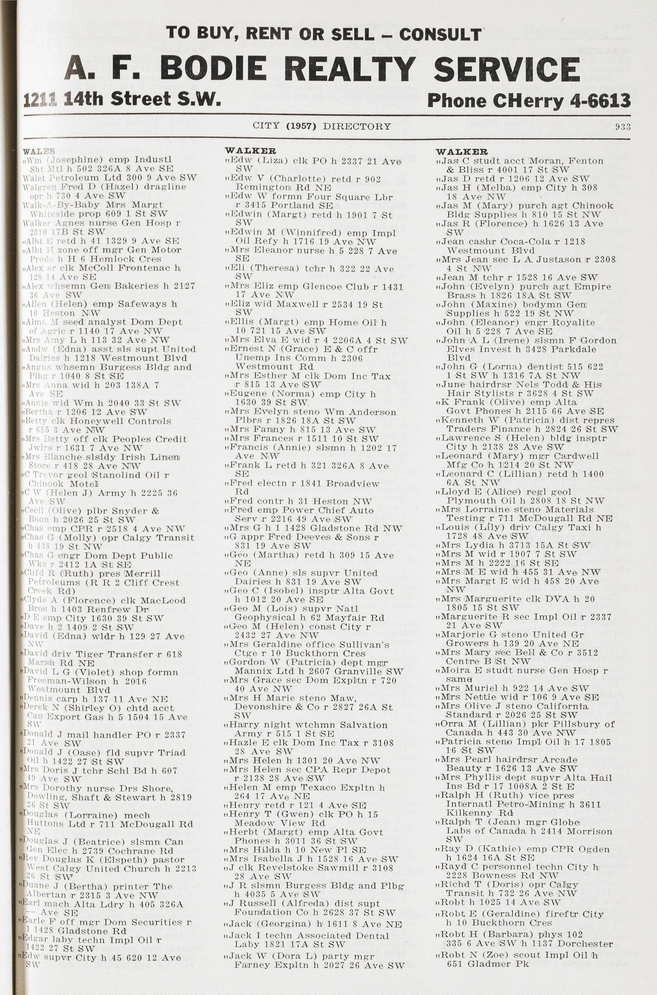 TO BUY, RENT OR SELL – CONSULT
A. F. BODIE REALTY SERVICE
1211 14th Street S.W. Phone CHerry 4-6613
CITY (1957) DIRECTORY 933
WALES
„Wm (Josephine) emp Industl
Sht Mtl h 502 326A 8 Ave SE
Walet Petroleum Ltd 300 9 Ave SW
Walgren Fred D (Hazel) dragline
opr h 730 4 Ave SW
Walk-A-By-Baby Mrs Margt
Whiteside prop 609 1 St SW
Walker Agnes nurse Gen Hosp r
2310 17B St SW
„Albt E retd h 41 1329 9 Ave SE
„Albt L zone off mgr Gen Motor
Prods h H 6 Hemlock Cres
„Alex sr clk McColl Frontenac h
128 14 Ave SE
„Alex whsemn Gen Bakeries h 2127
36 Ave SW
„Allen (Helen) emp Safeways h
16 Heston NW
„Alma M seed analyst Dom Dept
of Agric r 1140 17 Ave NW
„Mrs Amy L h 113 32 Ave NW
„Andw (Edna) asst sls supt United
Dairies h 1218 Westmount Blvd
„Angus whsemn Burgess Bldg and
Plbg r 1040 8 St SE
„Mrs Anna wid h 203 138A 7
Ave SE
„Annie wid Wm h 2040 33 St SW
„Bertha r 1206 12 Ave SW
„Betty clk Honeywell Controls
r 655 3 Ave NW
„Mrs Betty off clk Peoples Credit
Jwlrs r 1631 7 Ave NW
„Mrs Blanche slsldy Irish Linen
Store r 418 28 Ave NW
„C Trevor geol Stanolind Oil r
Chinook Motel
„C W (Helen J) Army h 2225 36
Ave SW
„Cecil (Olive) plbr Snyder &
Boon h 2026 25 St SW
„Chas emp CPR r 2518 4 Ave NW
„Chas G (Molly) opr Calgy Transit
h 438 19 St NW
„Chas G engr Dom Dept Public
Wks r 2422 1A St SE
„Cliffd R (Ruth) pres Merrill
Petroleums (R R 2 Cliff Crest
Creek Rd)
„Clyde A (Florence) clk MacLeod
Bros h 1403 Renfrew Dr
„D E emp City 1630 39 St SW
„Dave h 2 1409 2 St SW
„David (Edna) wldr h 129 27 Ave
NW
„David driv Tiger Transfer r 618
Marsh Rd NE
„David L G (Violet) shop formn
Freeman-Wilson h 2016
Westmount Blvd
„Dennis carp h 137 11 Ave NE
„Derek N (Shirley O) chtd acct
Can Export Gas h 5 1504 15 Ave
SW
„Donald J mail handler PO r 2337
21 Ave SW
„Donald J (Oase) fld supvr Triad
Oil h 1422 27 St SW
„Mrs Doris J tchr Schl Bd h 607
49 Ave SW
„Mrs Dorothy nurse Drs Shore,
Dowling, Shaft & Stewart h 2819
26 St SW
„Douglas (Lorraine) mech
Huttons Ltd r 711 McDougall Rd
NE
„Douglas J (Beatrice) slsmn Can
Gen Elec h 2739 Cochrane Rd
„Rev Douglas K (Elspeth) pastor
West Calgy United Church h 2213
26 St SW
„Duane J (Bertha) printer The
Albertan r 2315 3 Ave NW
„Earl mach Alta Ldry h 405 326A
— Ave SE
„Earle F off mgr Dom Securities r
1 1428 Gladstone Rd
„Edgar laby techn Impl Oil r
1422 27 St SW
„Edw supvr City h 45 620 12 Ave
SW
WALKER
„Edw (Liza) clk PO h 2337 21 Ave
SW
„Edw V (Charlotte) retd r 902
Remington Rd NE
„Edw W formn Four Square Lbr
r 3415 Portland SE
„Edwin (Margt) retd h 1901 7 St
SW
„Edwin M (Winnifred) emp Impl
Oil Refy h 1716 19 Ave NW
„Mrs Eleanor nurse h 5 228 7 Ave
SE
„Eli (Theresa) tchr h 322 22 Ave
SW
„Mrs Eliz emp Glencoe Club r 1431
17 Ave NW
„Eliz wid Maxwell r 2534 19 St
SW
„Ellis (Margt) emp Home Oil h
10 721 15 Ave SW
„Mrs Elva E wid r 4 2206A 4 St SW
„Ernest N (Grace) E & C offr
Unemp Ins Comm h 2306
Westmount Rd
„Mrs Esther M clk Dom Inc Tax
r 815 13 Ave SW
„Eugene (Norma) emp City h
1630 39 St SW
„Mrs Evelyn steno Wm Anderson
Plbrs r 1826 18A St SW
„Mrs Fanny h 815 13 Ave SW
„Mrs Frances r 1511 10 St SW
„Francis (Annie) slsmn h 1202 17
Ave NW
„Frank L retd h 321 326A 8 Ave
SE
„Fred electn r 1841 Broadview
Rd
„Fred contr h 31 Heston NW
„Fred emp Power Chief Auto
Serv r 2216 49 Ave SW
„Mrs G h 1 1428 Gladstone Rd NW
„G appr Fred Deeves & Sons r
831 19 Ave SW
„Geo (Martha) retd h 309 15 Ave
NE
„Geo (Anne) sls supvr United
Dairies h 831 19 Ave SW
„Geo C (Isobel) insptr Alta Govt
h 1012 20 Ave SE
„Geo M (Lois) supvr Natl
Geophysical h 62 Mayfair Rd
„Geo M (Helen) const City r
2432 27 Ave NW
„Mrs Geraldine office Sullivan's
Ctge r 10 Buckthorn Cres
„Gordon W (Patricia) dept mgr
Mannix Ltd h 2607 Granville SW
„Mrs Grace sec Dom Expltn r 720
40 Ave NW
„Mrs H Marie steno Maw,
Devonshire & Co r 2827 26A St
SW
„Harry night wtchmn Salvation
Army r 515 1 St SE
„Hazle E clk Dom Inc Tax r 3108
28 Ave SW
„Mrs Helen h 1301 20 Ave NW
„Mrs Helen sec CPA Repr Depot
r 2138 28 Ave SW
„Helen M emp Texaco Expltn h
264 17 Ave NE
„Henry retd r 121 4 Ave SE
„Henry T (Gwen) clk PO h 15
Meadow View Rd
„Herbt (Margt) emp Alta Govt
Phones h 3011 36 St SW
„Mrs Hilda h 10 New Pl SE
„Mrs Isabella J h 1528 16 Ave SW
„J clk Revelstoke Sawmill r 3108
28 Ave SW
„J R slsmn Burgess Bldg and Plbg
h 4035 5 Ave SW
„J Russell (Alfreda) dist supt
Foundation Co h 2628 37 St SW
„Jack (Georgina) h 1611 8 Ave NE
„Jack I techn Associated Dental
Laby 1821 17A St SW
„Jack W (Dora L) party mgr
Farney Expltn h 2027 26 Ave SW
WALKER
„Jas C studt acct Moran, Fenton
& Bliss r 4001 17 St SW
„Jas D retd r 1206 12 Ave SW
„Jas H (Melba) emp City h 308
18 Ave NW
„Jas M (Mary) purch agt Chinook
Bldg Supplies h 810 15 St NW
„Jas R (Florence) h 1626 13 Ave
SW
„Jean cashr Coca-Cola r 1218
Westmount Blvd
„Mrs Jean sec L A Justason r 2308
4 St NW
„Jean M tchr r 1528 16 Ave SW
„John (Evelyn) purch agt Empire
Brass h 1826 18A St SW
„John (Maxine) bodymn Gen
Supplies h 522 19 St NW
„John (Eleanor) engr Royalite
Oil h 5 228 7 Ave SE
„John A L (Irene) slsmn F Gordon
Elves Invest h 3428 Parkdale
Blvd
„John G (Lorna) dentist 515 622
1 St SW h 1316 7A St NW
„June hairdrsr Nels Todd & His
Hair Stylists r 3628 4 St SW
„K Frank (Olive) emp Alta
Govt Phones h 2115 66 Ave SE
„Kenneth W (Patricia) dist repres
Traders Finance h 2824 26 St SW
„Lawrence S (Helen) bldg insptr
City h 2138 28 Ave SW
„Leonard (Mary) mgr Cardwell
Mfg Co h 1214 20 St NW
„Leonard C (Lillian) retd h 1400
6A St NW
„Lloyd E (Alice) regl geol
Plymouth Oil h 2808 18 St NW
„Mrs Lorraine steno Materials
Testing r 711 McDougall Rd NE
„Louis (Lily) driv Calgy Taxi h
1728 48 Ave SW
„Mrs Lydia h 3713 15A St SW
„Mrs M wid r 1907 7 St SW
„Mrs M h 2222 16 St SE
„Mrs M E wid h 455 31 Ave NW
„Mrs Margt E wid h 458 20 Ave
NW
„Mrs Marguerite clk DVA h 20
1805 15 St SW
„Marguerite R sec Impl Oil r 2337
21 Ave SW
„Marjorie G steno United Gr
Growers h 139 20 Ave NE
„Mrs Mary sec Bell & Co r 3512
Centre B St NW
„Moira E studt nurse Gen Hosp r
same
„Mrs Muriel h 922 14 Ave SW
„Mrs Nettie wid r 106 9 Ave SE
„Mrs Olive J steno California
Standard r 2026 25 St SW
„Orra M (Lillian) pkr Pillsbury of
Canada h 443 30 Ave NW
„Patricia steno Impl Oil h 17 1805
16 St SW
„Mrs Pearl hairdrsr Arcade
Beauty r 1626 13 Ave SW
„Mrs Phyllis dept supvr Alta Hail
Ins Bd r 17 1008A 2 St E
„Ralph H (Ruth) vice pres
Internatl Petro-Mining h 3611
Kilkenny Rd
„Ralph T (Jean) mgr Globe
Labs of Canada h 2414 Morrison
SW
„Ray D (Kathie) emp CPR Ogden
h 1624 16A St SE
„Rayd C personnel techn City h
2228 Bowness Rd NW
„Richd T (Doris) opr Calgy
Transit h 732 26 Ave NW
„Robt h 1025 14 Ave SW
„Robt E (Geraldine) fireftr City
h 10 Buckthorn Cres
„Robt H (Barbara) phys 102
335 6 Ave SW h 1137 Dorchester
„Robt N (Zoe) scout Impl Oil h
651 Gladmer Pk